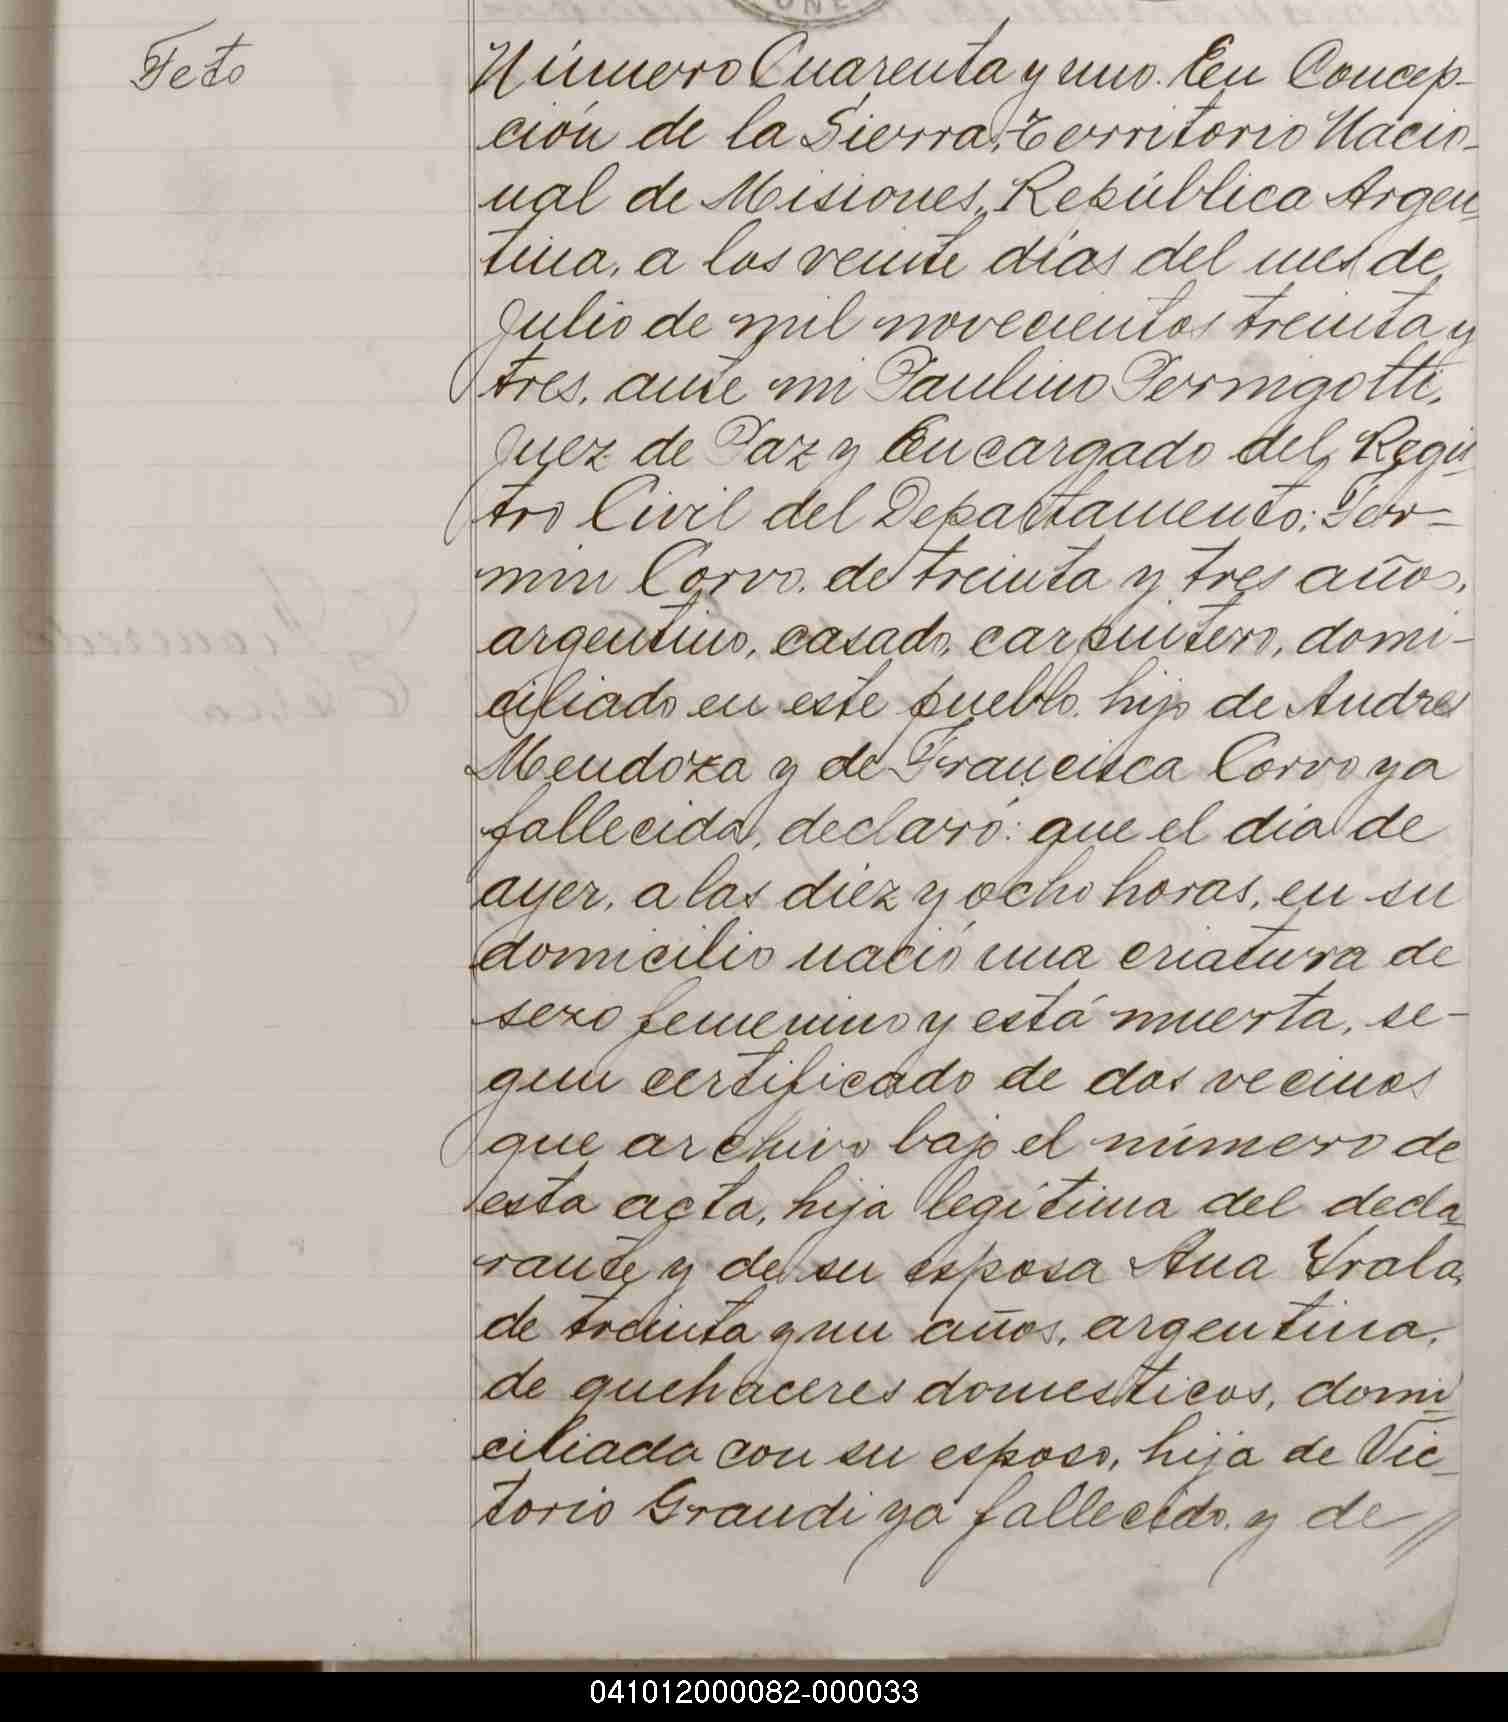 Feto
Número Cuarenta y uno. En Concep-
ción de la Sierra, Territorio Nacio-
nal de Misiones, República Argen-
tina, a los veinte días del mes de
Julio de mil novecientos treinta y
tres, ante mi Paulino Peringotti,
Juez de Paz y Encargado del Regis-
tro Civil del Departamento: Fer-
min Corvo, de treinta y tres años,
argentino, casado, carpintero, domi-
ciliado en este pueblo, hijo de Andres
Mendoza y de Francisca Corvo ya
fallecida, declaró: que el día de
ayer, a las diez y ocho horas, en su
domicilio nació una criatura de
sexo femenino y está muerta, se-
gun certificado de dos vecinos
que archivo bajo el número de
esta acta, hija legítima del decla-
rante y de su esposa Ana Yrala,
de treinta y un años, argentina,
de quehaceres domesticos, domi-
ciliada con su esposo, hija de Vic-
torio Grandi ya fallecido, y de //
041012000082-000033